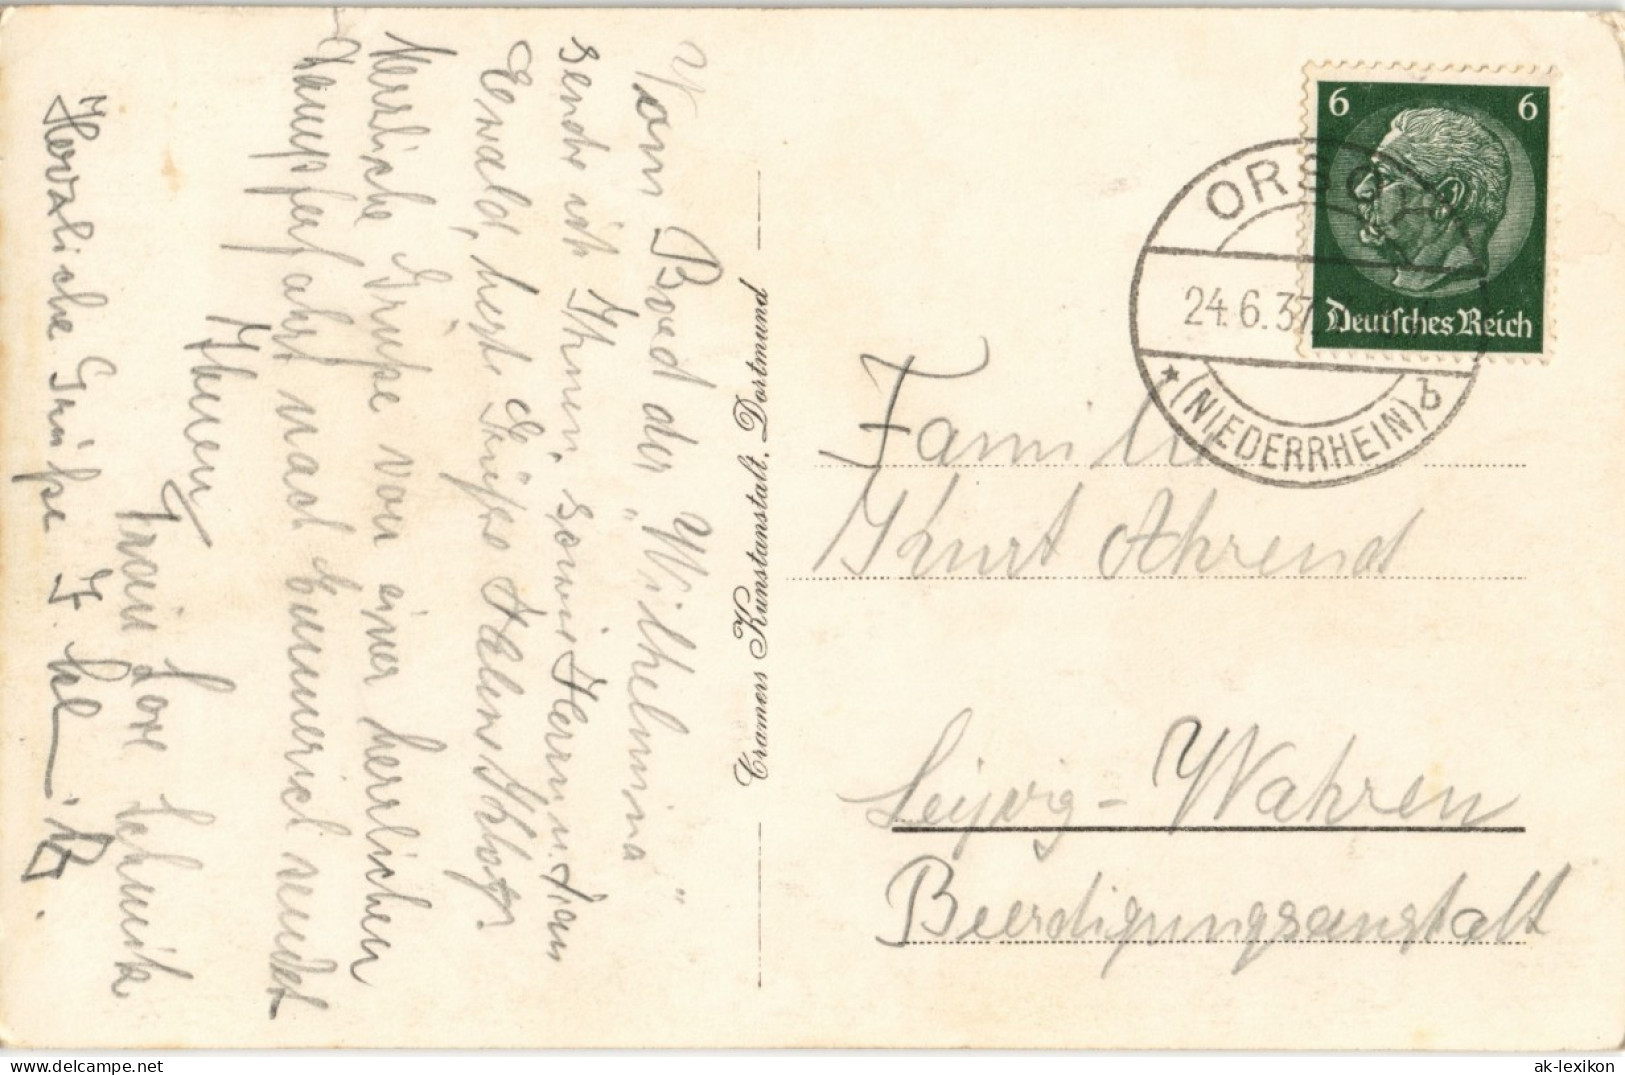 Vom Bord der „Wilhelmina“
sende ich Ihnen, sowie Herrn u. Frau
Ewald, beste Grüße
Herzliche Grüße von einer herrlichen
Dampferfahrt nach Emmerich sendet
Ihnen
Frau Lore Schmitz
Herzliche Grüße
Cramers Kunstanstalt, Dortmund
6 6
Deutsches Reich
ORSOY
24.6.37
* (NIEDERRHEIN) b
Familie
Kurt Ahrend
Leipzig-Wahren
Beerdigungsanstalt
www.delcampe.net
Karten_Paradies
ak-lexikon